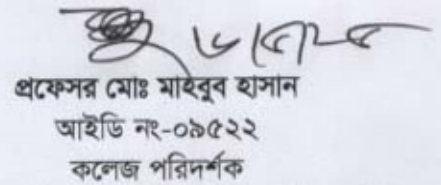 ৬/৫/২৫
প্রফেসর মোঃ মাহবুব হাসান
আইডি নং-০৯৫২২
কলেজ পরিদর্শক